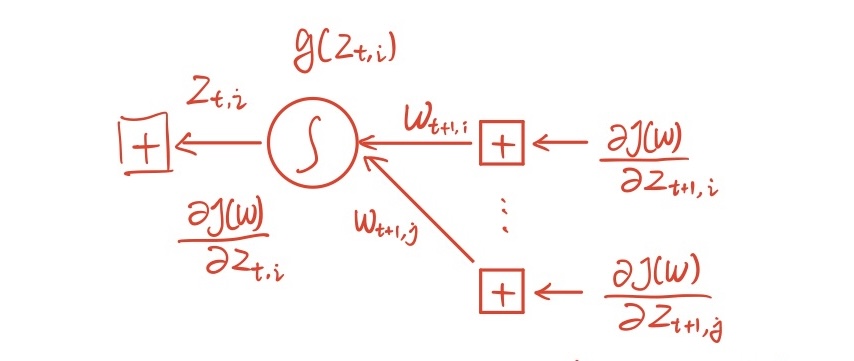 g(z_{t,i})
z_{t,i}
w_{t+1,i}
+
∫
+
∂J(w)/∂z_{t+1,i}
∂J(w)/∂z_{t,i}
w_{t+1,j}
⋮
+
∂J(w)/∂z_{t+1,j}